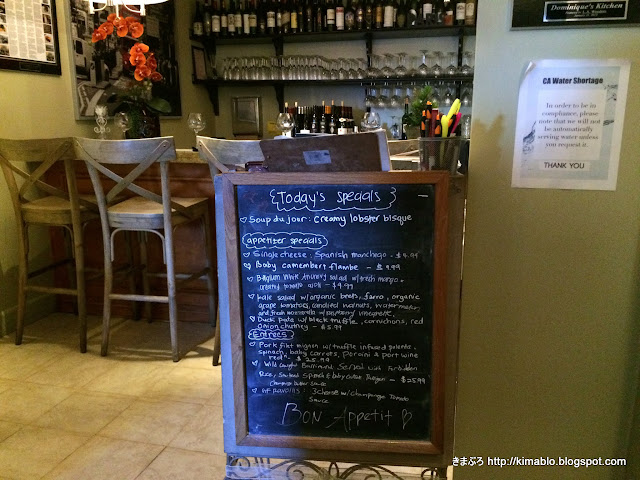 Dominique's Kitchen
CA Water Shortage
In order to be in
compliance, please
note that we will not
be automatically
serving water unless
you request it.
THANK YOU
Today's Specials
Soup du jour: Creamy lobster bisque
appetizer specials
Single cheese: Spanish manchego - $9.99
Baby camembert flambe - $9.99
Belgium white salad w/ fresh mango
creamy tomato - $9.99
Kale salad w/ organic beets, farro, organic
grape tomatoes, candied walnuts, watermelon
and fresh mozzarella w/ vinaigrette
Duck Pate w/ black truffle, cornichons, red
onion chutney - $15.99
Entrees
Pork filet mignon w/ truffle infused polenta,
spinach, baby carrots, Porcini & port wine
red - $25.99
Wild Caught Barramundi Served with Forbidden
Rice, Sauteed Spinach & baby - $25.99
Champagne butter sauce
3 cheese w/ champagne Tomato
Sauce
Bon Appetit
きまぶろ http://kimablo.blogspot.com